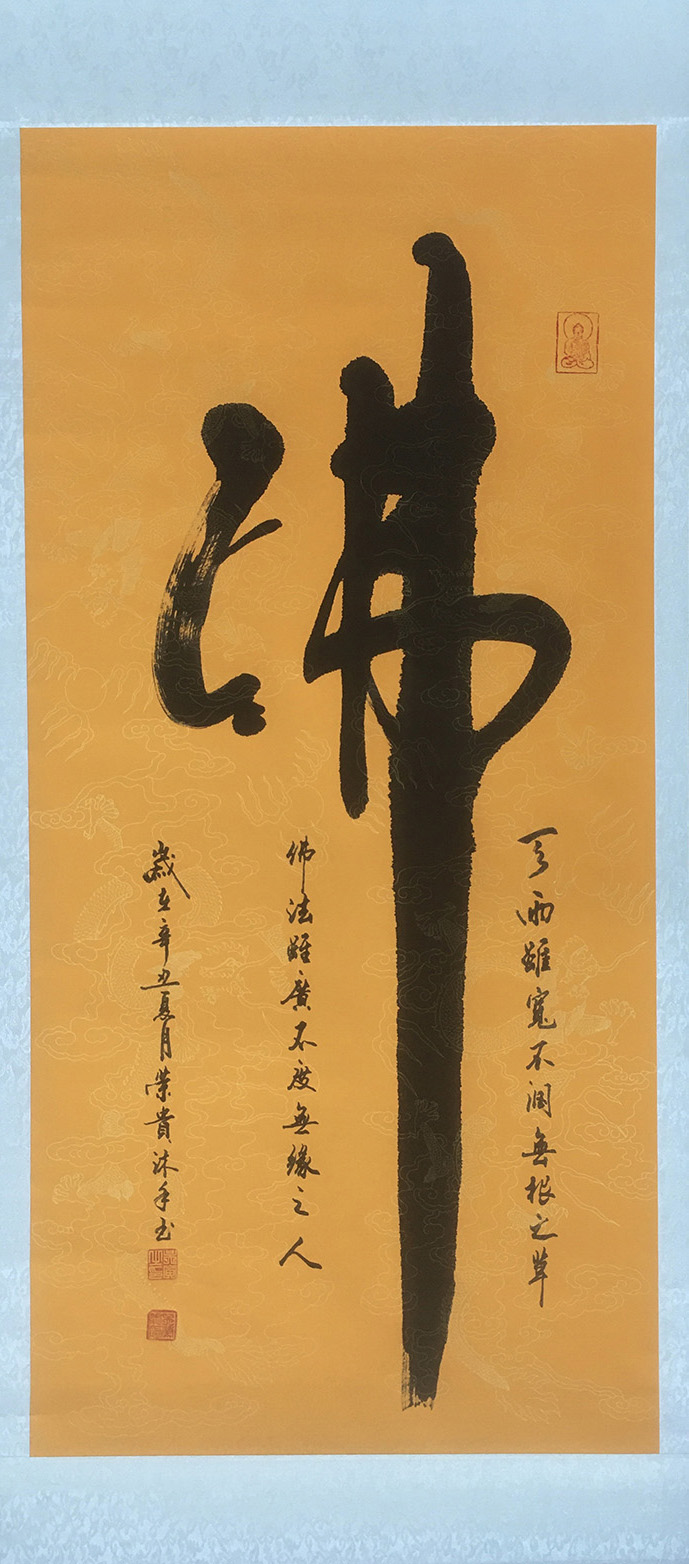 佛
天雨雖寬不潤無根之草
佛法雖廣不度無緣之人
歲在辛丑夏月榮貴沐手書